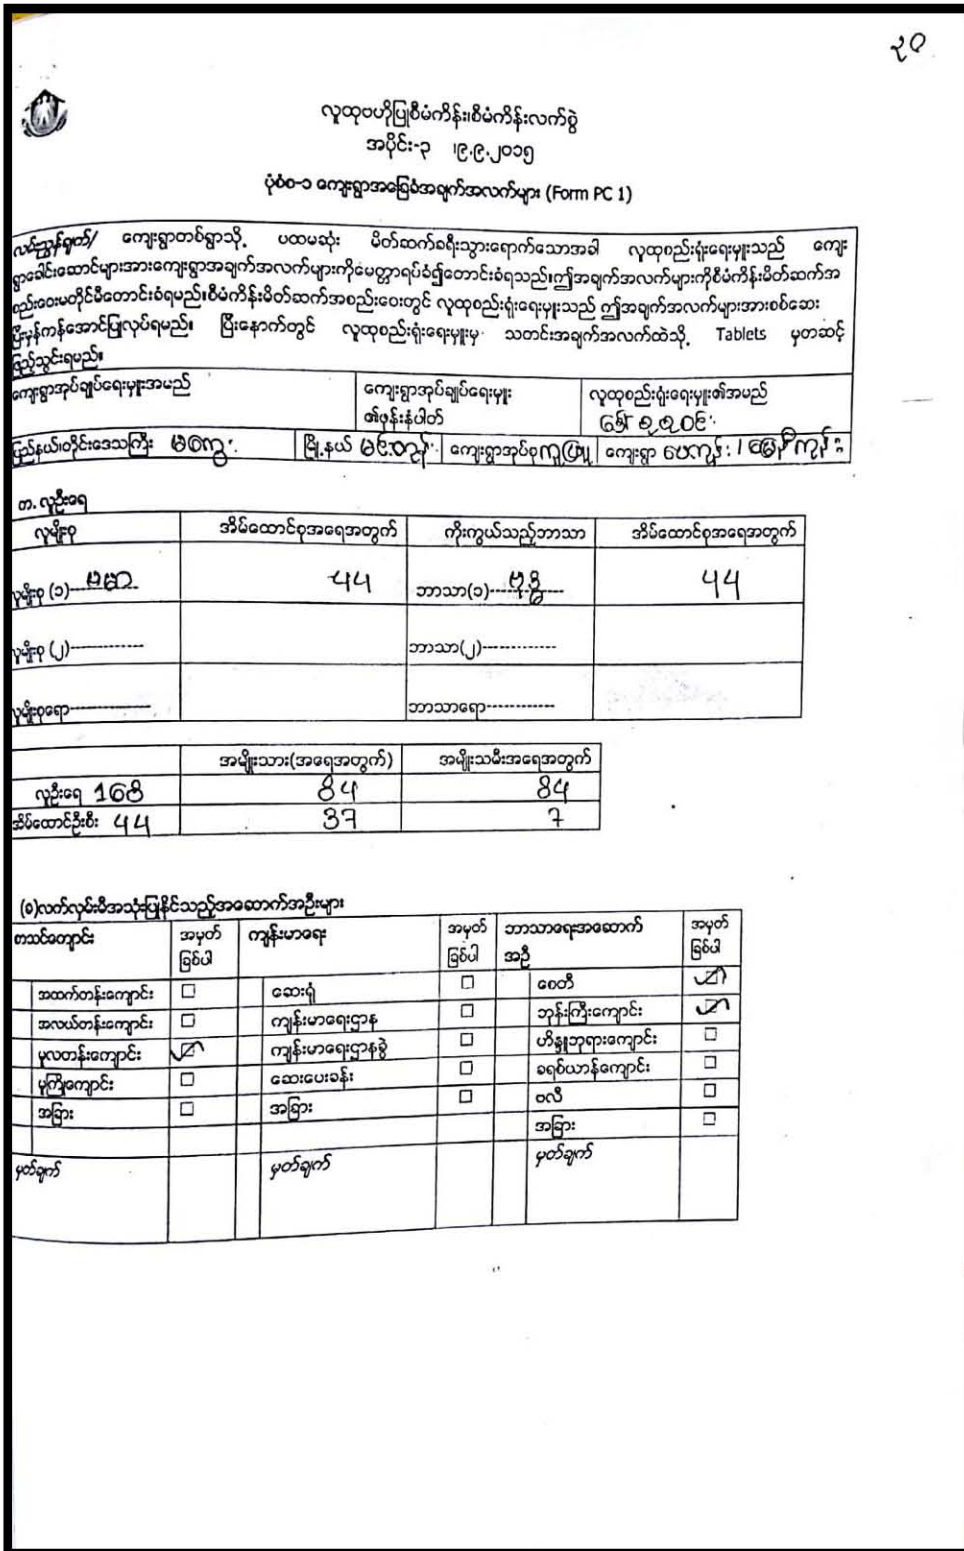 ၃၀
လူထုဗဟိုပြုစီမံကိန်း၊စီမံကိန်းလက်စွဲ
အပိုင်း-၃ ၊၉.၉.၂၀၁၅
ပုံစံစ-၁ ကျေးရွာအခြေခံအချက်အလက်များ (Form PC 1)
လမ်းညွှန်ချက်/ ကျေးရွာတစ်ရွာသို့ ပထမဆုံး မိတ်ဆက်ခရီးသွားရောက်သောအခါ လူထုစည်းရုံးရေးမှူးသည် ကျေး
ရွာခေါင်းဆောင်များအားကျေးရွာအချက်အလက်များကိုမေတ္တာရပ်ခံ၍တောင်းခံရသည်။ဤအချက်အလက်များကိုစီမံကိန်းမိတ်ဆက်အ
စည်းဝေးမတိုင်မီတောင်းခံရမည်။စီမံကိန်းမိတ်ဆက်အစည်းဝေးတွင် လူထုစည်းရုံးရေးမှူးသည် ဤအချက်အလက်များအားစစ်ဆေး
ပြီးမှန်ကန်အောင်ပြုလုပ်ရမည်။ ပြီးနောက်တွင် လူထုစည်းရုံးရေးမှူးမှ သတင်းအချက်အလက်ထဲသို့ Tablets မှတဆင့်
ဖြည့်သွင်းရမည်။
ကျေးရွာအုပ်ချုပ်ရေးမှူးအမည် ကျေးရွာအုပ်ချုပ်ရေးမှူး လူထုစည်းရုံးရေးမှူး၏အမည်
၏ဖုန်းနံပါတ်
ပြည်နယ်၊တိုင်းဒေသကြီး မကွေး မြို့နယ် ငဖဲ ကျေးရွာအုပ်စု ကျေးရွာ
က. လူဦးရေ
လူမျိုးစု အိမ်ထောင်စုအရေအတွက် ကိုးကွယ်သည့်ဘာသာ အိမ်ထောင်စုအရေအတွက်
လူမျိုးစု (၁) ဗမာ 44 ဘာသာ(၁) ဗုဒ္ဓ 44
လူမျိုးစု (၂)------------- ဘာသာ(၂)-------------
လူမျိုးစုရော-------------- ဘာသာရော------------
အမျိုးသား(အရေအတွက်) အမျိုးသမီးအရေအတွက်
လူဦးရေ 168 84 84
အိမ်ထောင်ဦးစီး 44 37 7
(ခ)လက်လှမ်းမီအသုံးပြုနိုင်သည့်အဆောက်အဦးများ
စာသင်ကျောင်း အမှတ် ကျန်းမာရေး အမှတ် ဘာသာရေးအဆောက် အမှတ်
ခြစ်ပါ ခြစ်ပါ အဦ ခြစ်ပါ
အထက်တန်းကျောင်း □ ဆေးရုံ □ စေတီ ☑
အလယ်တန်းကျောင်း □ ကျန်းမာရေးဌာန □ ဘုန်းကြီးကျောင်း ☑
မူလတန်းကျောင်း ☑ ကျန်းမာရေးဌာနခွဲ □ ဟိန္ဒူဘုရားကျောင်း □
မူကြိုကျောင်း □ ဆေးပေးခန်း □ ခရစ်ယာန်ကျောင်း □
အခြား □ အခြား □ ဗလီ □
အခြား □
မှတ်ချက် မှတ်ချက် မှတ်ချက်